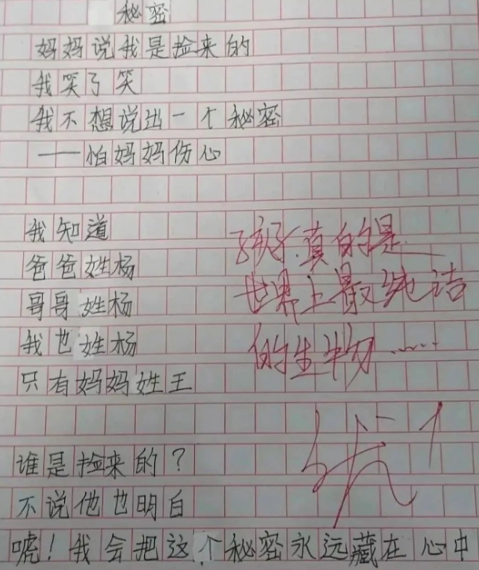 秘密
妈妈说我是捡来的
我笑了笑
我不想说出一个秘密
——怕妈妈伤心
我知道
爸爸姓杨
哥哥姓杨
我也姓杨
只有妈妈姓王
孩子，真的是
世界上最纯洁
的生物……
优↑
谁是捡来的？
不说他也明白
唬！我会把这个秘密永远藏在心中